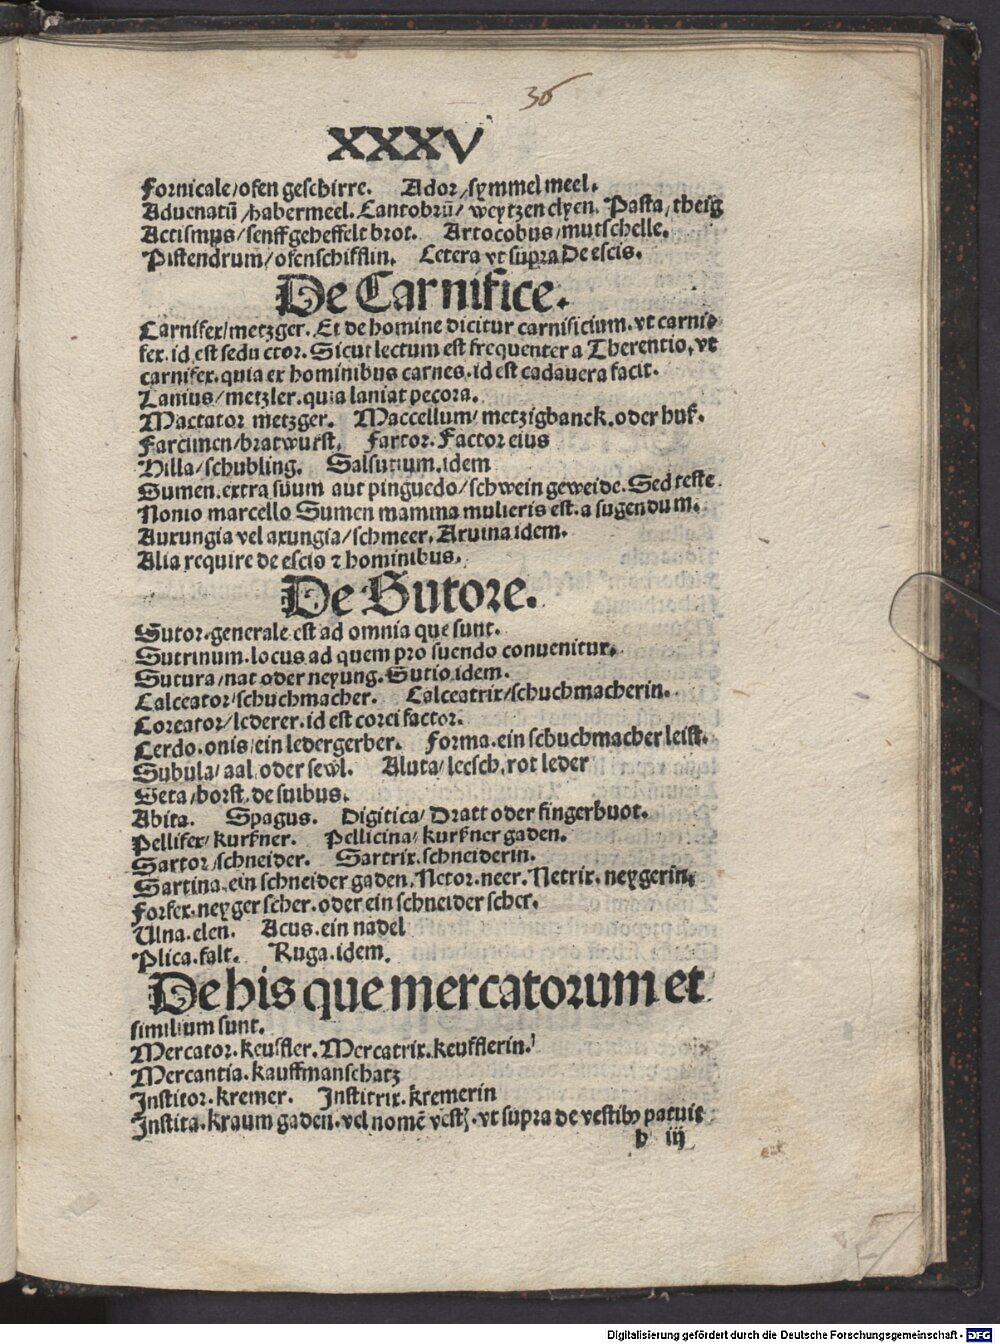 36
XXXV
Fornicale/ofen geschirre. Ador/symmel meel.
Aduenatū/habermeel. Cantobrū/ weytzen clyen. Pasta/theig
Actismus/senff geheffelt brot. Artocobus/mutschelle.
Pistendrum/ofenschifflin. Cetera vt supra De escis.
De Carnifice.
Carnifex/metzger. Et de homine dicitur carnificium. vt carni-
fex. id est seductor. Sicut lectum est frequenter a Therentio. vt
carnifex. quia ex hominibus carnes. id est cadauera facit.
Lanius/metzler. quia laniat pecora.
Mactator metzger. Maccellum/metzigbanck. oder huß.
Farcimen/bratwurst. Fartor. Factor eius
Hilla/schubling. Salsutium. idem
Sumen. extra suum aut pinguedo/schwein geweide. Sed teste
Nonio marcello Sumen mamma mulieris est. a sugendum.
Auxungia vel axungia/schmeer. Aruina idem.
Alia require de escis ⁊ hominibus.
De Sutore.
Sutor. generale est ad omnia que sunt.
Sutrinum. locus ad quem pro suendo conuenitur.
Sutura/nat oder neyung. Sutio idem.
Calceator/schuchmacher. Calceatrix/schuchmacherin.
Coreator/lederer. id est corei factor.
Cerdo. onis/ein ledergerber. Forma. ein schuchmacher leist.
Subula/aal oder sewl. Aluta/leesch. rot leder
Seta/borst. de suibus.
Abita. Spagus. Digitica/Dratt oder fingerhuot.
Pellifex/kurßner. Pellicina/kurßner gaden.
Sartor/schneider. Sartrix. schneiderin.
Sartina. ein schneider gaden. Netor. neer. Netrix. neygerin.
Forfex. neyger scher. oder ein schneider scher.
Ulna. elen. Acus. ein nadel
Plica. falt. Ruga. idem.
De his que mercatorum et
similium sunt.
Mercator. keuffler. Mercatrix. keufflerin.
Mercantia. kauffmanschatz
Institor. kremer. Institrix. kremerin
Instita. kraum gaden. vel nomē vestꝭ. vt supra de vestibꝰ patuit
b iij
Digitalisierung gefördert durch die Deutsche Forschungsgemeinschaft - DFG